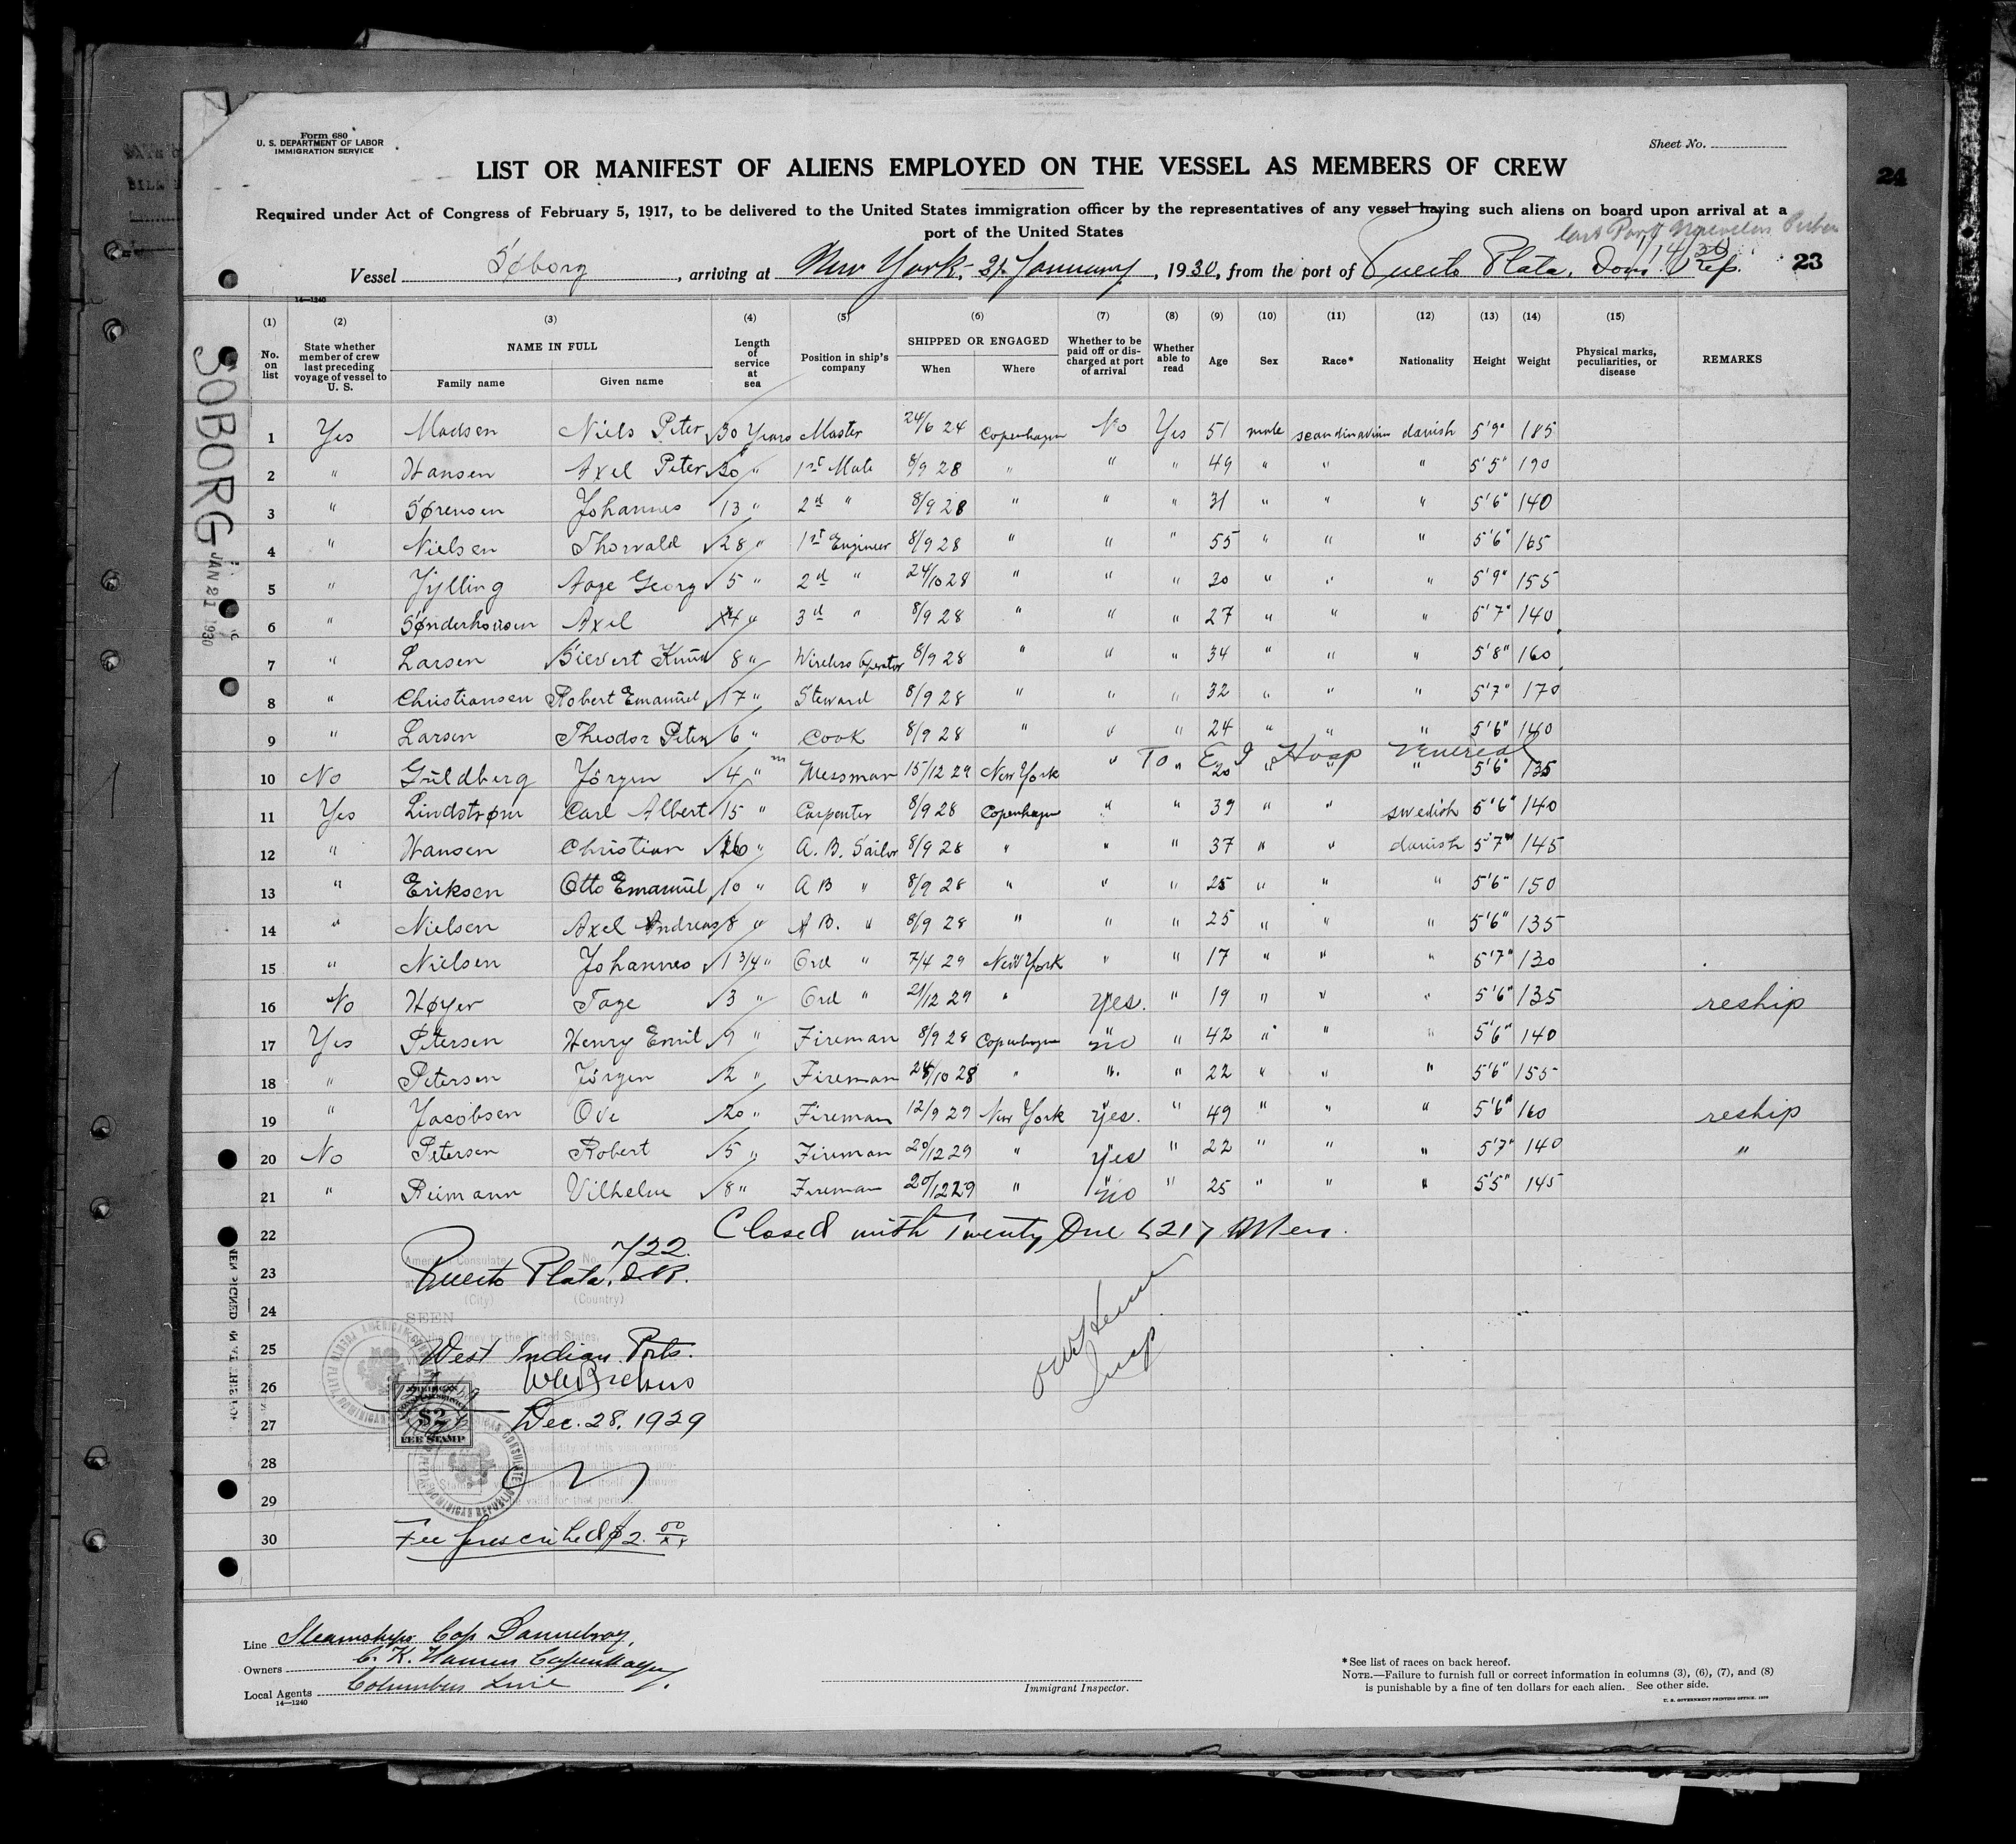 Form 680
U. S. DEPARTMENT OF LABOR
IMMIGRATION SERVICE
Sheet No.
LIST OR MANIFEST OF ALIENS EMPLOYED ON THE VESSEL AS MEMBERS OF CREW
24
Required under Act of Congress of February 5, 1917, to be delivered to the United States immigration officer by the representatives of any vessel having such aliens on board upon arrival at a
port of the United States
Last Port
1/14/30
Vessel Søborg, arriving at New York, 21 January, 1930, from the port of Puerto Plata, Dom. Rep. 23
14—1240
(1) (2) (3) (4) (5) (6) (7) (8) (9) (10) (11) (12) (13) (14) (15)
No. on list State whether member of crew last preceding voyage of vessel to U. S. NAME IN FULL Family name Given name Length of service at sea Position in ship's company SHIPPED OR ENGAGED When Where Whether to be paid off or discharged at port of arrival Whether able to read Age Sex Race* Nationality Height Weight Physical marks, peculiarities, or disease REMARKS
SOBORG JAN 21 1930
1 Yes Madsen Niels Peter 30 Years Master 24/6 24 Copenhagen No Yes 51 male scandinavian danish 5'9" 185
2 " Hansen Axel Peter 30 " 1st Mate 8/9 28 " " " 49 " " " 5'5" 190
3 " Sørensen Johannes 13 " 2d " 8/9 28 " " " 31 " " " 5'6" 140
4 " Nielsen Thorvald 28 " 1st Engineer 8/9 28 " " " 55 " " " 5'6" 165
5 " Jylling Aage Georg 5 " 2d " 24/10 28 " " " 30 " " " 5'9" 155
6 " Sønderhousen Axel 4 " 3d " 8/9 28 " " " 27 " " " 5'7" 140
7 " Larsen Sievert Knud 8 " Wireless Operator 8/9 28 " " " 34 " " " 5'8" 160
8 " Christiansen Robert Emanuel 17 " Steward 8/9 28 " " " 32 " " " 5'7" 170
9 " Larsen Theodor Peter 6 " Cook 8/9 28 " " " 24 " " " 5'6" 140
To E I Hosp Venereal
10 No Guldberg Jörgen 4 " m Messman 15/12 29 New York " " 20 " " " 5'6" 135
11 Yes Lindstrøm Carl Albert 15 " Carpenter 8/9 28 Copenhagen " " 39 " " swedish 5'6" 140
12 " Hansen Christian 20 " A. B. Sailor 8/9 28 " " " 37 " " danish 5'7" 145
13 " Eriksen Otto Emanuel 10 " A B " 8/9 28 " " " 25 " " " 5'6" 150
14 " Nielsen Axel Andreas 8 " A B. " 8/9 28 " " " 25 " " " 5'6" 135
15 " Nielsen Johannes 1 3/4 " Ord " 7/4 29 New York " " 17 " " " 5'7" 130
16 No Høyer Tage 3 " Ord " 21/12 29 " Yes. " 19 " " " 5'6" 135 reship
17 Yes Petersen Henry Emil 9 " Fireman 8/9 28 Copenhagen no " 42 " " " 5'6" 140
18 " Petersen Jörgen 2 " Fireman 24/10 28 " " " 22 " " " 5'6" 155
19 " Jacobsen Ove 20 " Fireman 12/9 29 New York Yes. " 49 " " " 5'6" 160 reship
20 No Petersen Robert 5 " Fireman 20/12 29 " Yes " 22 " " " 5'7" 140 "
21 " Reimann Vilhelm 8 " Fireman 20/12 29 " no " 25 " " " 5'5" 145
22 Closed with Twenty One (21) Men.
American Consulate No. 722.
23 Puerto Plata, D.R.
(City) (Country)
24
SEEN
25
West Indian Ports.
26
27 Dec. 28, 1929
$2
FEE STAMP
28
29
30 Fee prescribed $2.00
Insp
Line Steamships Cop Dannebrog,
Owners C. K. Hansen Copenhagen.
Local Agents Columbus Line
14—1240
Immigrant Inspector.
*See list of races on back hereof.
NOTE.—Failure to furnish full or correct information in columns (3), (6), (7), and (8)
is punishable by a fine of ten dollars for each alien. See other side.
U. S. GOVERNMENT PRINTING OFFICE